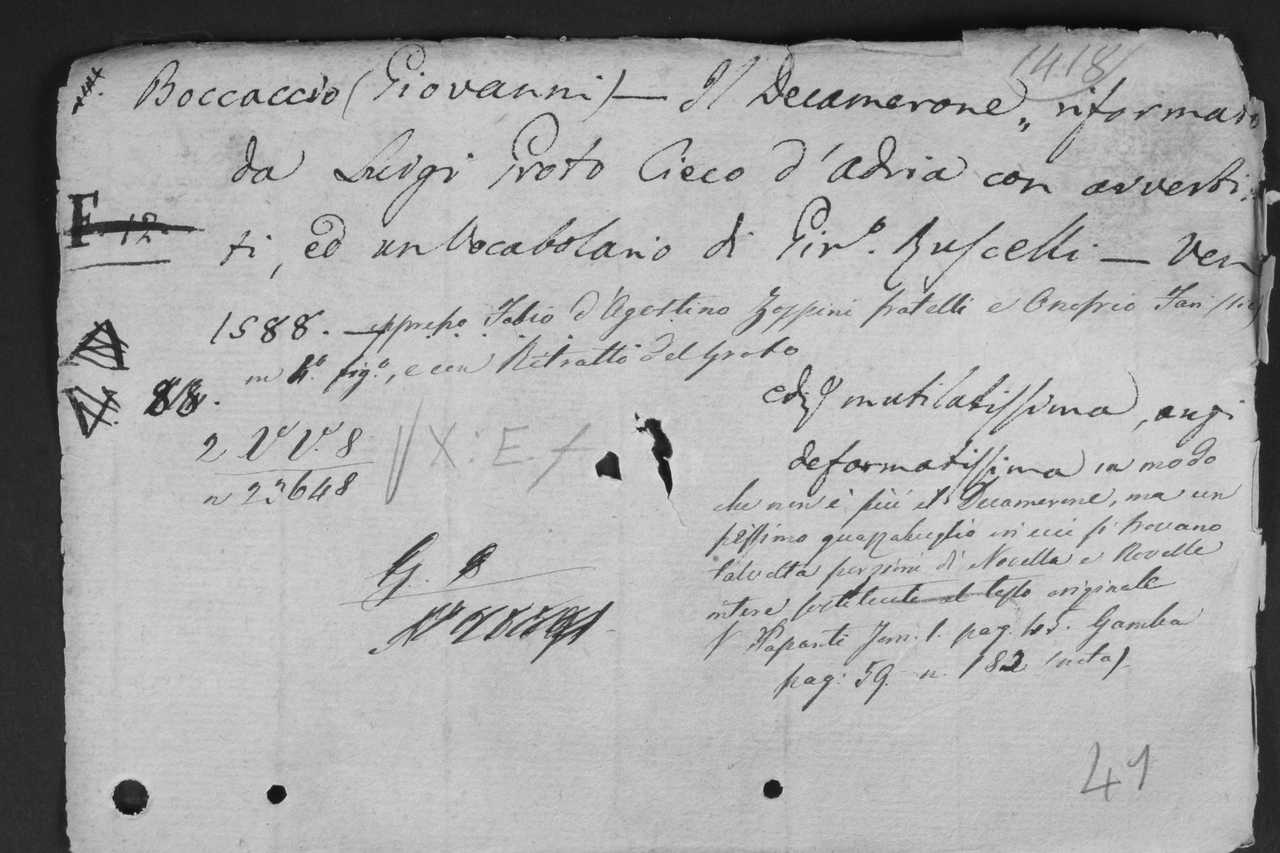 1418
Boccaccio (Giovanni) — Il Decamerone „ riformato
da Luigi Groto Cieco d'Adria con avverti:
F. 12
ti, ed un Vocabolario di Gir.º Ruscelli — Ven
1588. — appresso Fabio d'Agostino Zoppini fratelli e Onofrio Fari
in 4.º fig.º, e con Ritratto del Groto
88.
ediz mutilatissima, anzi
2 Vº Vº. 8
X: E.
deformatissima in modo
n 23648
che non è più il Decamerone, ma un
pessimo guazzabuglio in cui si trovano
talvolta porzioni di Novella e Novelle
G. B
intere sostituite al testo originale
V Papanti Tom. 1. pag. 45. Gamba
pag: 59. n. 182 (nota).
41